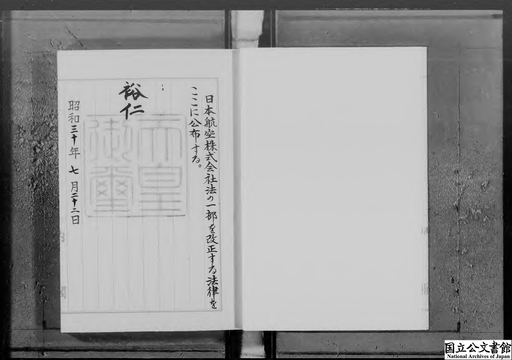 日本航空株式会社法の一部を改正する法律を
ここに公布する。
裕仁
天皇
御璽
昭和三十年七月二十二日
国立公文書館
National Archives of Japan